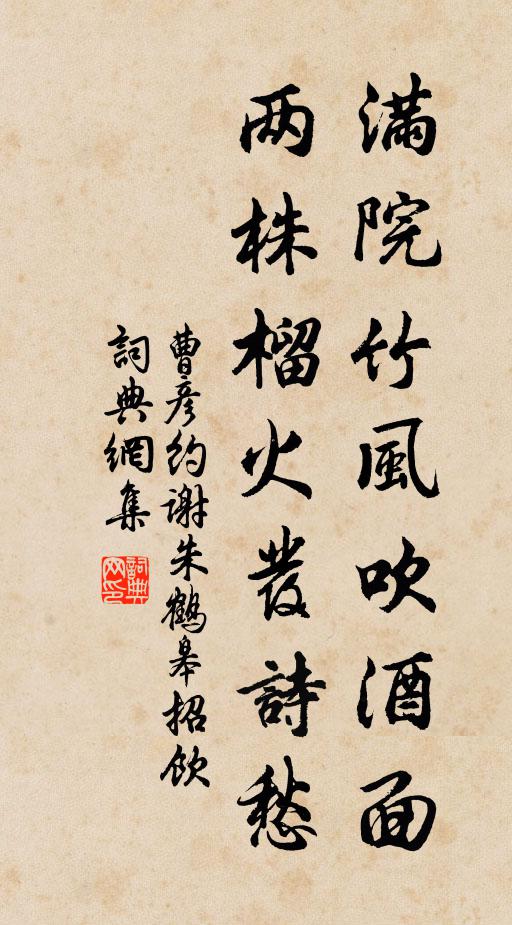 满院竹風吹酒面
两株榴火發詩愁
曹彦約谢朱鶴皋招飲
詞典網集
詞典網印